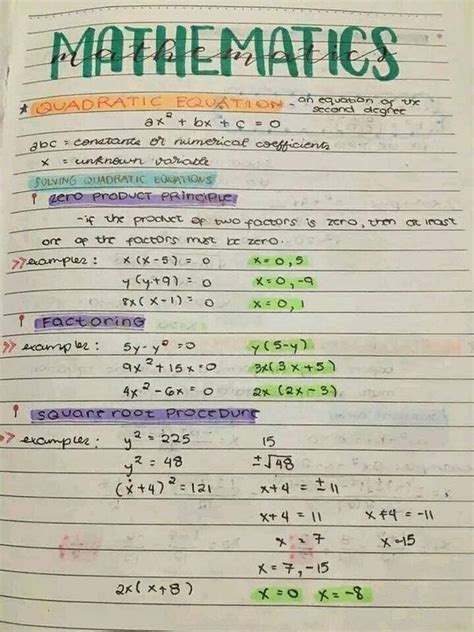 MATHEMATICS
mathematics
* QUADRATIC EQUATION - an equation of the second degree
ax² + bx + c = 0
abc = constants or numerical coefficients
x = unknown variable
SOLVING QUADRATIC EQUATIONS
! ZERO PRODUCT PRINCIPLE
-if the product of two factors is zero, then at least
one of the factors must be zero.
>> examples: x (x-5) = 0 x = 0, 5
y (y+9) = 0 x = 0, -9
8x( x-1) = 0 x = 0, 1
! FACTORING
>> examples: 5y-y² = 0 y (5-y)
9x² + 15x = 0 3x( 3x+5)
4x² - 6x = 0 2x (2x-3)
! SQUARE ROOT PROCEDURE
>> examples: y² = 225 15
y² = 48 ±√48
(x+4)² = 121 x+4 = ± 11
x+4 = 11 x+4 = -11
x = 7 x=-15
x = 7, -15
2x( x+8) x = 0 x = -8